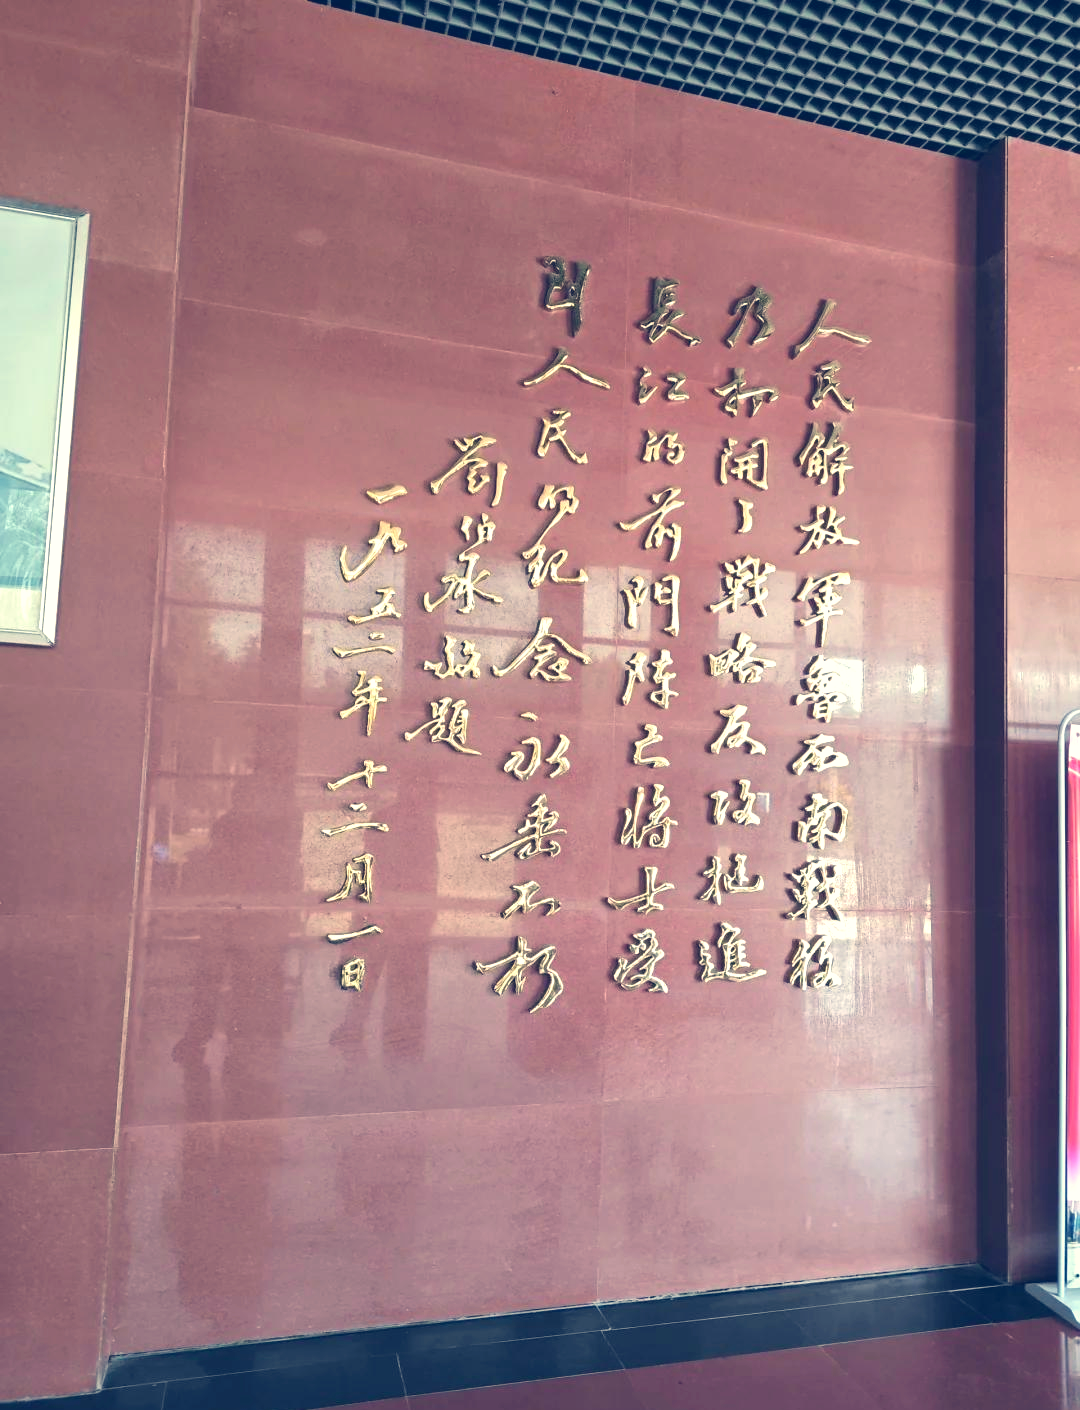 人民解放軍魯西南戰役
为扣開了戰略反攻挺進
長江的前門陣亡將士受
到人民的紀念永垂不朽
劉伯承敬題
一九五二年十二月一日